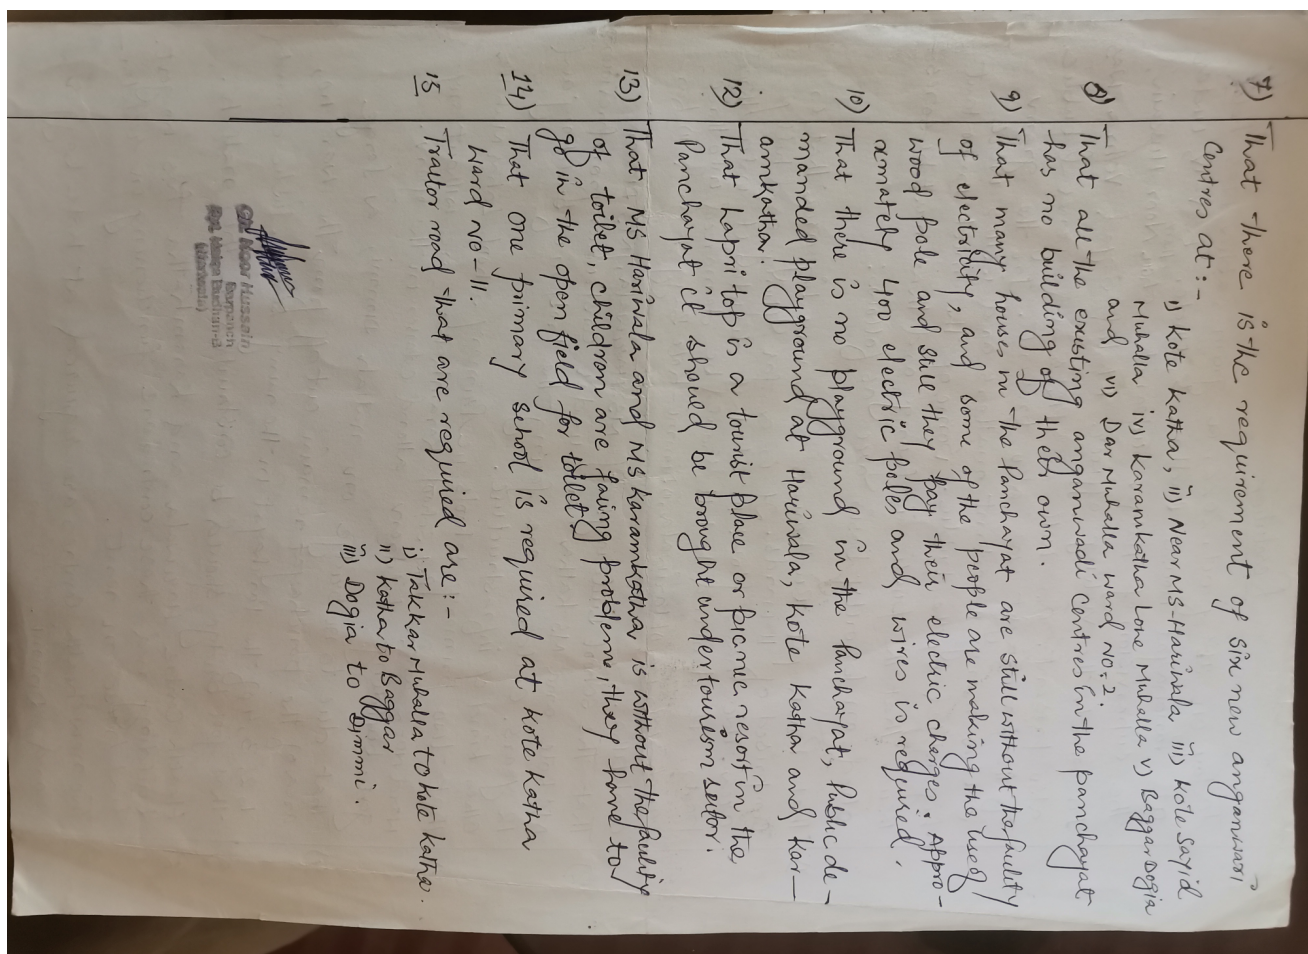 7) That there is the requirement of six new anganwari
Centres at:-
i) Kote Katha, ii) Near MS-Hariwala iii) Kote Sayid
Muhalla iv) Karamkatha Lone Muhalla v) Baggar Dogia
and vi) Dar Muhalla ward No:-2.
8) That all the existing anganwadi Centres in the panchayat
has no building of their own.
9) That many houses in the Panchayat are still without the facility
of electricity, and some of the people are making the use of
wood pole and still they pay their electric charges. Appro-
xmately 400 electric poles and wires is required.
10) That there is no playground in the Panchayat, Public de-
manded playground at Hariwala, Kote Katha and Kar-
amkatha.
12) That Lapri top is a tourist place or picnic resort in the
Panchayat it should be brought under tourism sector.
13) That MS Hariwala and MS Karamkatha is without the facility
of toilet, children are facing problems, they have to
go in the open field for toilets
14) That one primary school is required at Kote Katha
ward No-11.
15 Tractor road that are required are:-
i) Takkar Muhalla to Kote Katha.
ii) Katha to Baggar
iii) Dogia to Dimmi.
Noor Hussain
Sarpanch